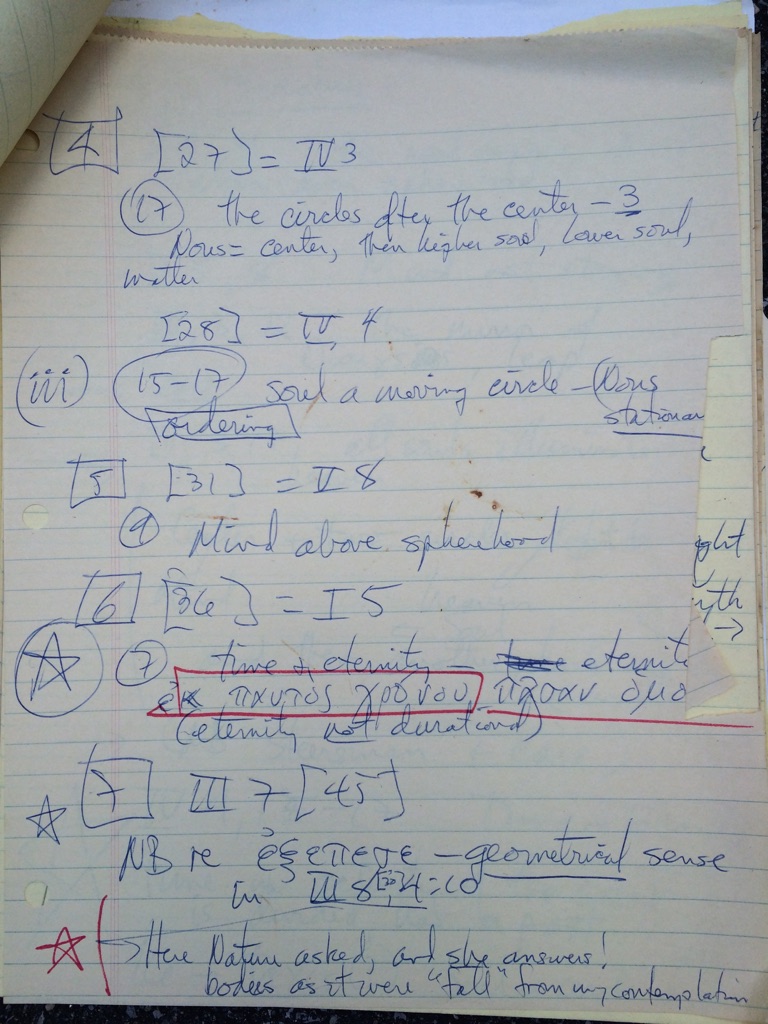 4 [27] = IV 3
17 the circles after the center – 3
Nous = center, then higher soul, lower soul,
matter
[28] = IV, 4
(iii) 15-17 soul a moving circle – (Nous
ordering stationar
5 [31] = II 8
9 Mind above spherehood
ght
6 [36] = I 5
yth
→
7 time & eternity – time eternit
ἐκ παντὸς χρόνου, πᾶσαν ὁμο
(eternity not durational)
7 III 7 [45]
NB re ἐξέπεσε – geometrical sense
in III 8 [30], 4 = 10
Here Nature asked, and she answers!
bodies as it were "fall" from my contemplation